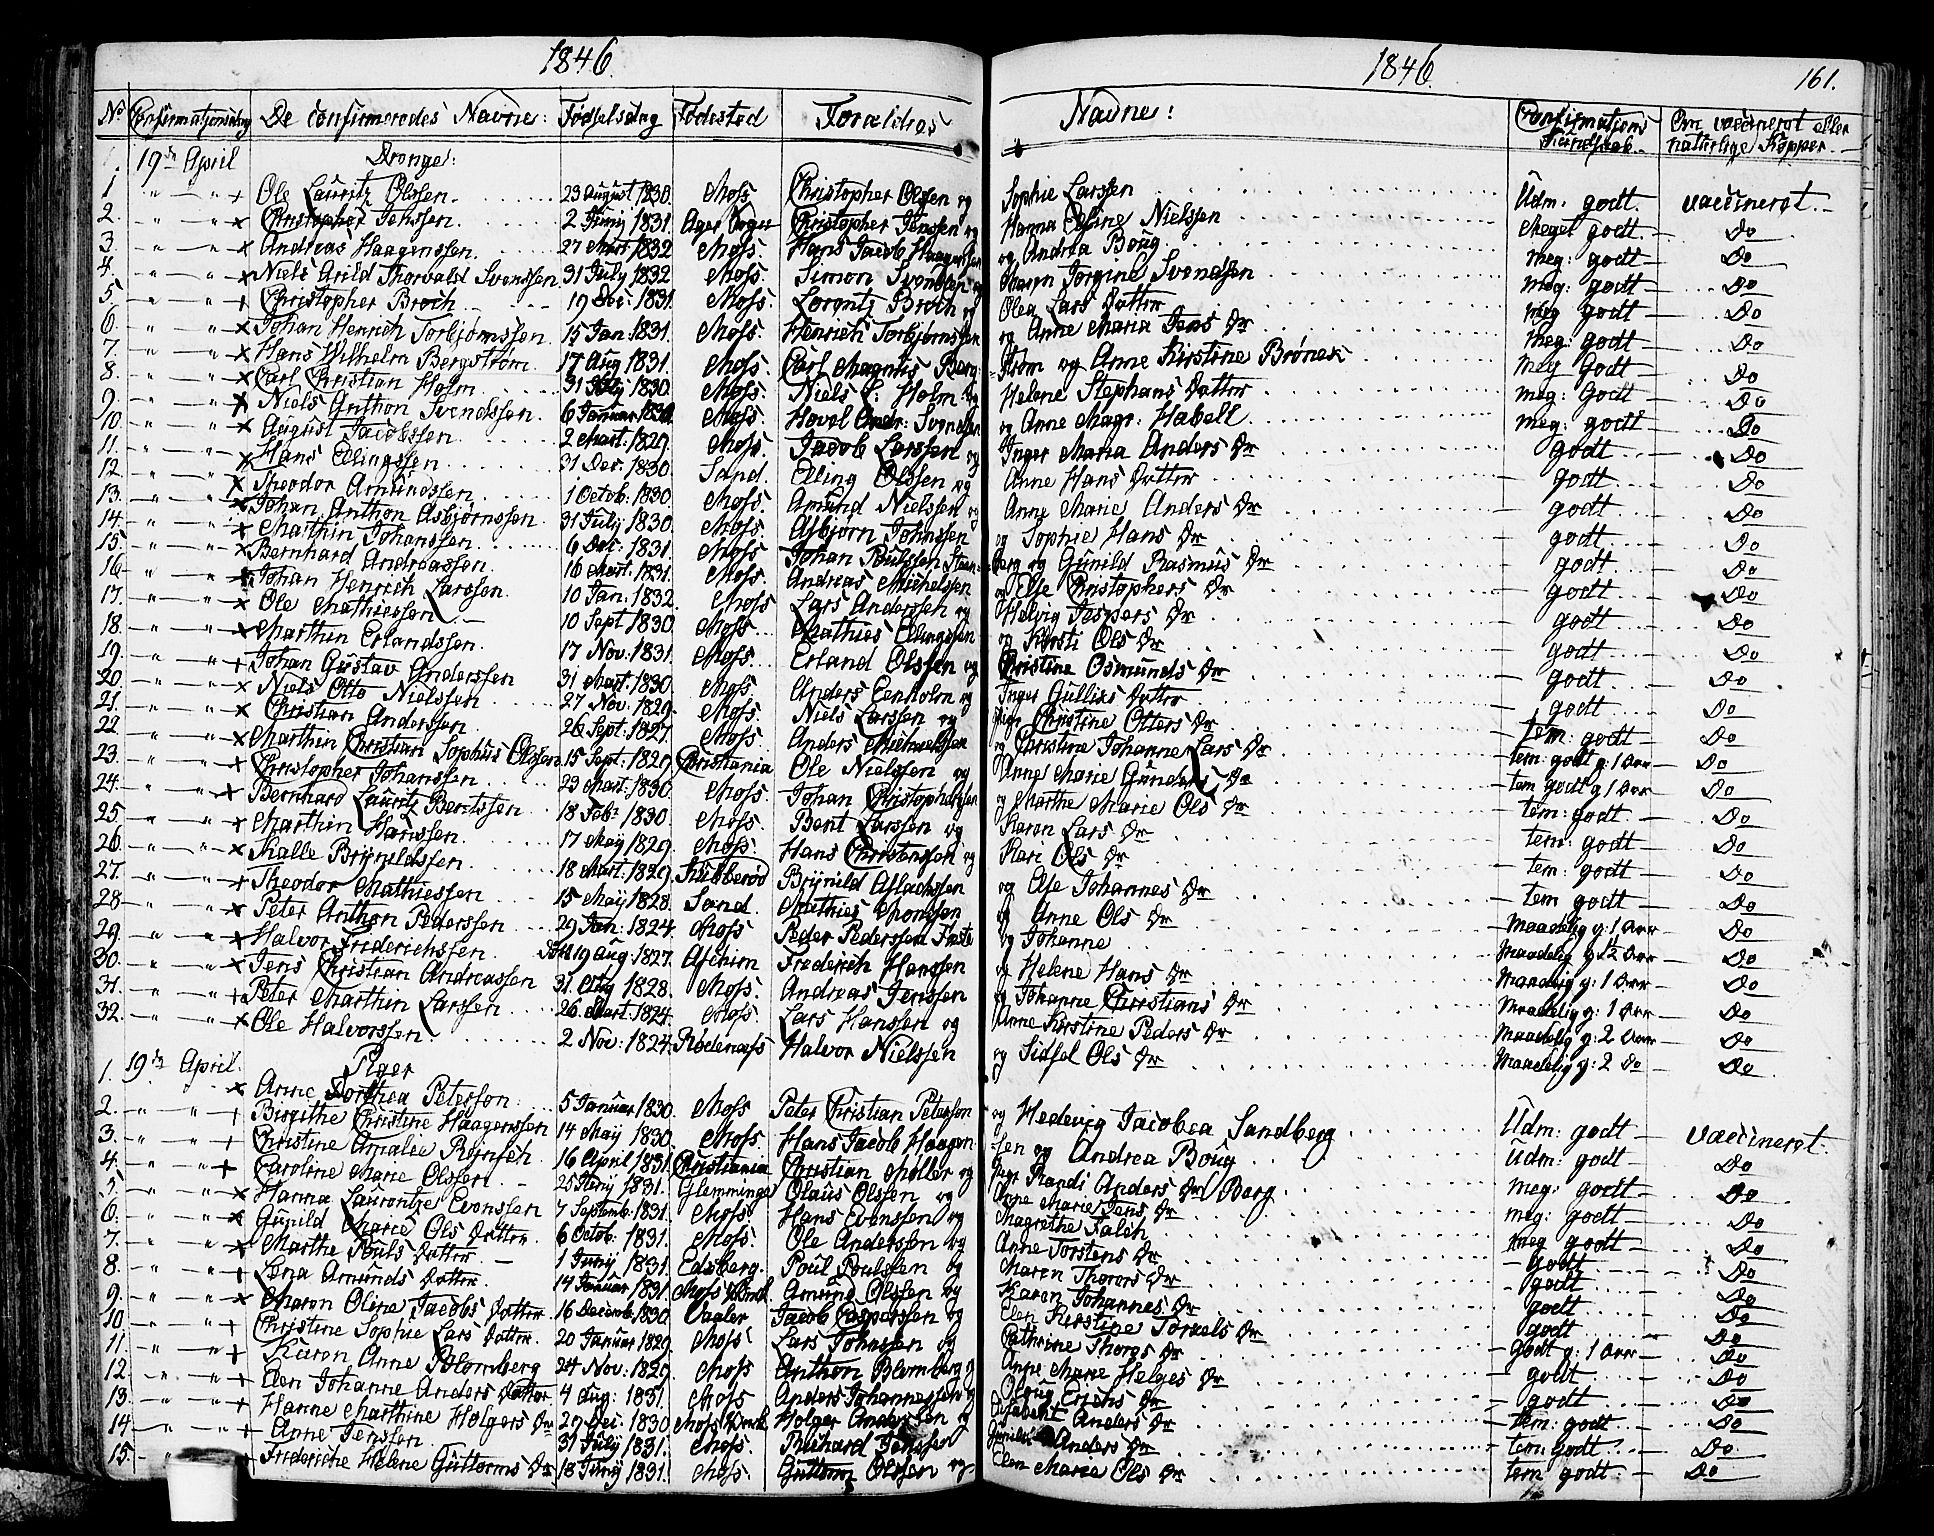 1846. 1846. 161.
No Confirmationsdag De confirmeredes Navne: Fødselsdag Fødested Forældres Navne: Confirmations Kundskab. Om vaccineret eller naturlige Kopper.
19de April Drenge:
1 Ole Lauritz Olssen. 23 August 1830. Moss Christopher Olssen og Sophie Larssen Udm: godt vaccineret.
2. Christopher Jenssen. 2 Junij 1831. Christopher Jenssen og Hanna Eline Nielssen Meget godt Do
3. Andreas Haagenssen. 27 Mart 1832 Moss. Hans Jacob Haagenssen og Andrea Boug meg: godt Do
4. Niels Arild Thorvald Svendssen 31 July 1832 Moss. Simon Svendsen og Maren Jorgine Svendssen meg: godt Do
5. Christopher Broch 19 Dec: 1831. Moss. Lorentz Broch og Olea Lars Datter meg godt Do
6. Johan Henrich Torbjørnssen. 15 Jan. 1831. Moss. Henrich Torbjørnssen og Anne Maria Jens Dr meg: godt Do
7. Hans Wilhelm Bergstrøm. 17 Aug 1831. Moss. Carl Magnus Berg: strøm og Anne Kirstine Brønek meg godt Do
8. Carl Christian Holm. 31 July 1830. Moss. Niels C: Holm og Helene Stephans Datter meg: godt Do
9. Niels Anthon Svendssen. 6 Januar 1830. Moss. Hovel Ander: Svendsen og Anne Magr: Habell meg: godt Do
10. August Jacobssen. 2 Mart: 1829. Moss. Jacob Larssen og Inger Maria Anders Dr godt Do
11. Hans Ellingssen 31 Dec. 1830. Sand. Elling Olssen og Anne Hans Datter godt Do
12. Theodor Amundssen. 1 Octob: 1830. Moss. Amund Nielssen og Anne Marie Anders Dr godt Do
13. Johan Anthon Asbjørnssen. 31 July 1830. Moss. Asbjørn Johnssen og Sophie Hans Dr godt Do
14. Marthin Johanssen. 6 Dec: 1831. Moss. Johan Poulssen og Gunild Rasmus Dr godt Do
15. Bernhard Andreassen. 16 Mart. 1831. Moss. Andreas Michelsen og Else Christophers Dr godt Do
16. Johan Henrich Larssen. 10 Jan: 1832. Moss Lars Anderssen og Helvig Jespers Dr godt Do
17. Ole Mathiessen. 10 Sept 1830. Moss. Mathies Ellingssen og Kirsti Ols Dr godt Do
18. Marthin Erlandssen. 17 Nov: 1831. Moss. Erland Olssen og Christine Osmunds Dr godt Do
19. Johan Gustav Anderssen 31 Mart. 1830. Moss Anders Eenholm og Inger Gulliks Datter godt Do
20. Niels Otto Nielssen 27 Nov. 1829. Moss. Niels Larssen og Christine Otters Dr godt Do
21. Christian Anderssen. 26 Sept. 1827. Moss. Anders Michaelssen og Christine Johanne Lars Dr tem: godt Do
22 Marthin Christian Sophus Olssen 15 Sept: 1829. Christiania Ole Nielssen og Anne Marie Gunders Dr tem: godt g: 1 Aar Do
23. Christopher Johanssen. 23 Mart. 1830. Moss. Johan Christopherssen og Marthe Marie Ols Dr tem godt g 1 Aar Do
24. Bernhard Lauritz Berntssen. 18 Feb: 1830. Moss. Bent Larssen og Karen Lars Dr tem: godt. Do
25. Marthin Hanssen. 17 May 1829. Moss. Hans Christenssen og Kari Ols Dr tem: godt Do
26. Kalle Brynildssen. 18 Mart. 1829. Kubberød Brynild Aslachssen og Ase Johannes Dr tem: godt Do
27. Theodor Mathiessen 15 May 1828. Sand. Mathies Monssen og Anne Ols Dr tem godt Do
28 Peter Anthon Pederssen. 29 Jan: 1824. Moss Peder Pederssen og Johanne Maadelig g: 1 Aar Do
29. Halvor Friderichssen. 19 Aug 1827. Aschim Frederich Hanssen og Helene Hans Dr Maadelig g: 1/2 Aar Do
30. Jens Christian Andreassen 1828. Moss. Andreas Jenssen og Johanne Christians Dr Maadelig g: 1 Aar Do
31. Peter Marthin Larssen 26 Mart. 1824. Moss Lars Hanssen og Anne Kirstine Peders Dr Maadelig g: 1 Aar Do
32. Ole Halvorssen. 2 Nov: 1824. Rødenæss Halvor Nielssen og Sidsel Ols Dr Maadelig g: 2 Aar Do
Maadelig g: 2 Do Do
19de April. Piger
1. Anne Dorthea Peterssen. 5 Januar 1830. Moss Peter Christian Peterssen og Hedevig Jacobea Sandberg Udm: godt vaccineret.
2. Birgithe Christine Haagenssen 14 May 1830. Moss. Hans Jacob Haagenssen og Andrea Boug Udm: godt Do
3. Christine Amalie Rejnsch. 16 April 1831. Christiania Christian Møller og Randi Anders Dr Berg. meg: godt Do
4. Caroline Marie Olssen. 25 Junij 1831. Glemminge Olaus Olssen og Anne Marie Jens Dr meg: godt Do
5. Hanna Laurentze Evenssen 7 Septemb. 1831. Moss Hans Evenssen og Magrethe Falch. meg godt Do
6. Gunild Marie Ols Datter. 6 Octob. 1831. Moss. Ole Anderssen og Anne Torstens Dr godt Do
7. Marthe Pouls Datter 1 Junij 1831. Edsberg. Poul Poulssen og Maren Thorers Dr godt Do
8. Lena Amunds Datter. 14 Januar 1831. Amund Olssen og Karen Johannes Dr godt Do
9. Maren Oline Jacobs Datter 16 Decemb. 1830. Vaaler Jacob Casperssen og Elen Kirstine Torkels Dr godt Do
10. Christine Sophie Lars Datter. 20 Januar 1829. Moss Lars Johnssen og Cathrine Thores Dr godt g: 1 Aar Do
11. Karen Anne Blomberg 24 Nov: 1829. Moss. Anthon Blomberg og Anne Marie Helges Dr godt Do
12. Elen Johanne Anders Datter 4 Aug: 1831. Moss Anders Johannessen og Oloug Erichs Dr godt Do
13. Hanne Marthine Holgers Dr 29 Dec: 1830 Holger Anderssen og Anders Dr tem: godt Do
14. Anne Jenssen. 31 July 1831. Moss. Richard Jenssen Gunild Anders Dr tem: godt Do
15. Frederiche Helene Guttorms Dr 18 Junij 1831. Moss. Guttorm Olssen og Elen Marie Ols Dr tem godt. Do